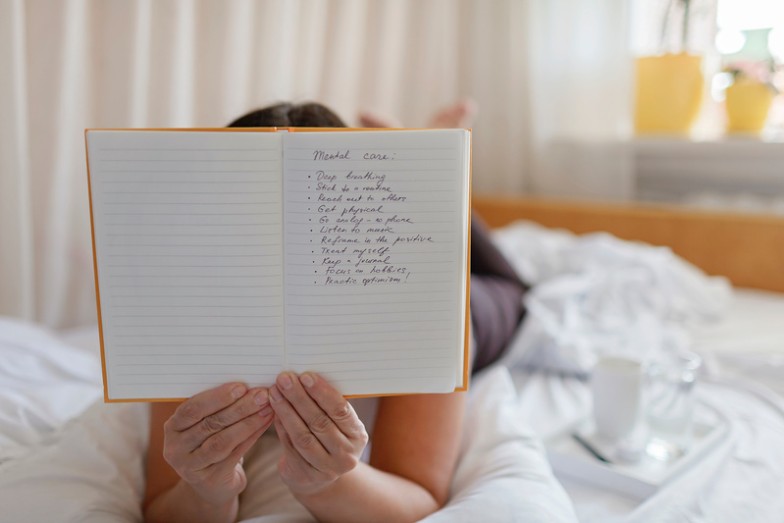 Mental care:
• Deep breathing
• Stick to a routine
• Reach out to others
• Get physical
• Go analog - no phone
• Listen to music
• Reframe in the positive
• Treat myself
• Keep a journal
• Focus on hobbies
• Practic optimism!